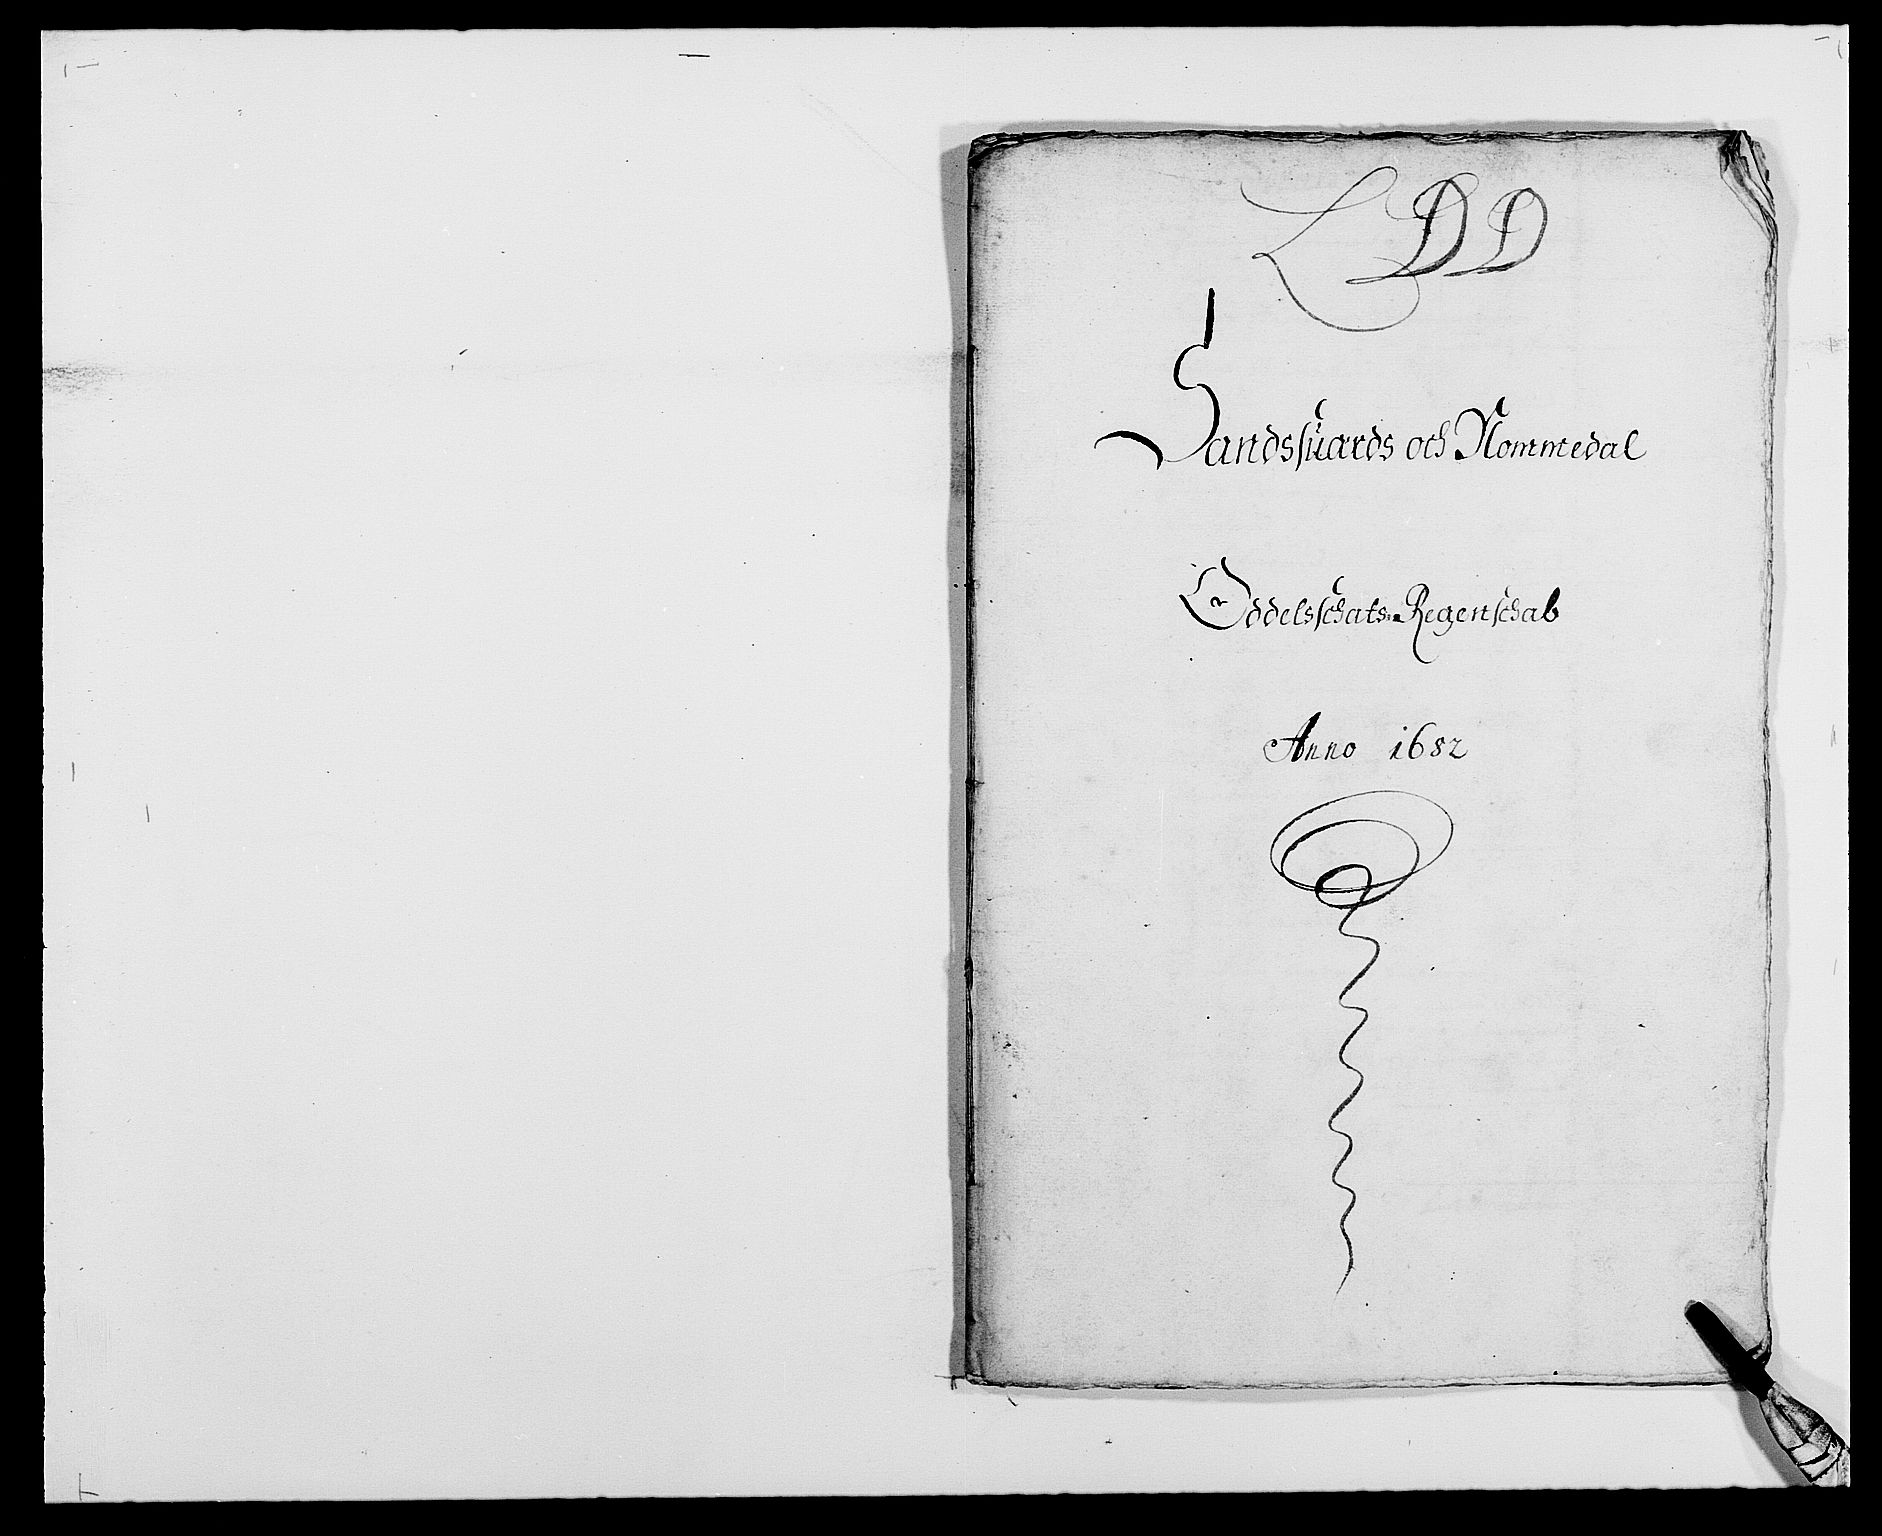 LDD
Sandsüards och Nommedal
Oddelsschats Regenschab
Anno 1682